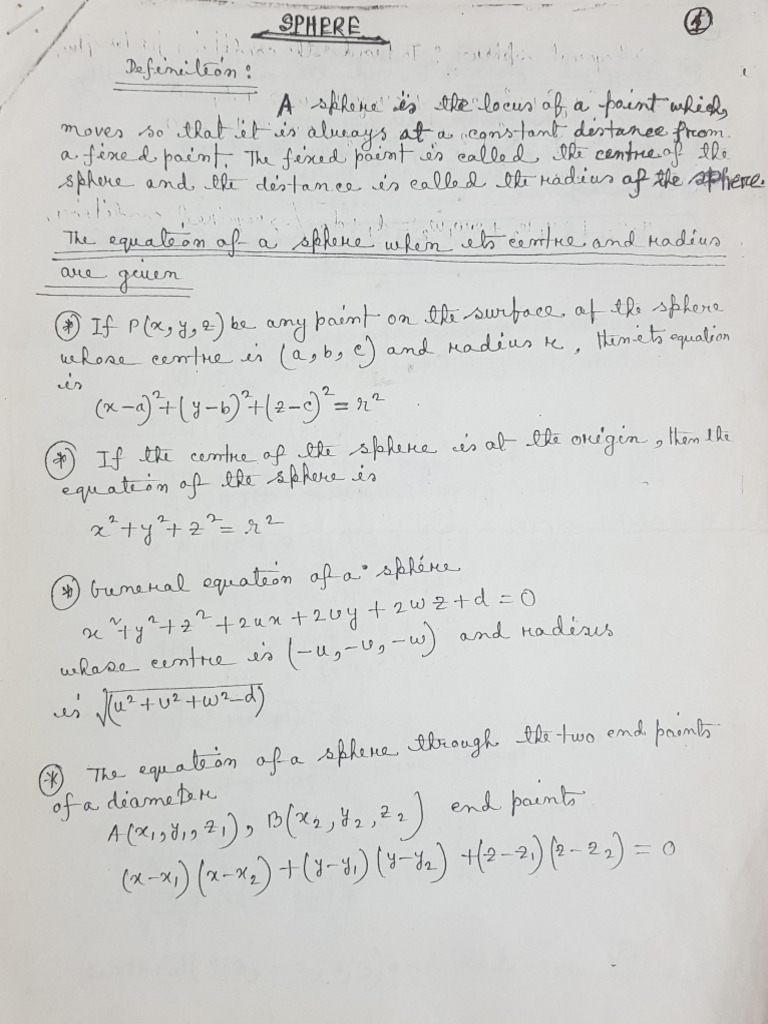 SPHERE
Definition:
A sphere is the locus of a point which
moves so that it is always at a constant distance from
a fixed point. The fixed point is called the centre of the
sphere and the distance is called the radius of the sphere.
The equation of a sphere when its centre and radius
are given
* If P(x, y, z) be any point on the surface of the sphere
whose centre is (a, b, c) and radius r, then its equation
is
(x-a)²+(y-b)²+(z-c)²=r²
* If the centre of the sphere is at the origin, then the
equation of the sphere is
x²+y²+z²=r²
* General equation of a sphere
x²+y²+z²+2ux+2vy+2wz+d=0
whose centre is (-u,-v,-w) and radius
is √(u²+v²+w²-d)
* The equation of a sphere through the two end points
of a diameter
A(x₁,y₁,z₁), B(x₂,y₂,z₂) end points
(x-x₁)(x-x₂)+(y-y₁)(y-y₂)+(z-z₁)(z-z₂)=0